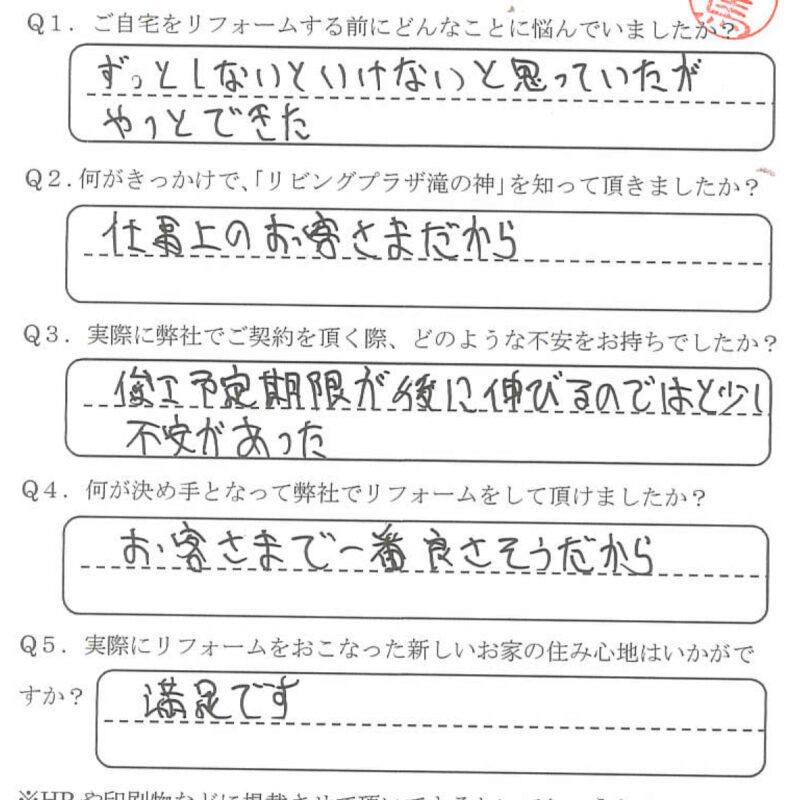 Q1．ご自宅をリフォームする前にどんなことに悩んでいましたか？
ずっとしないといけないと思っていたが
やっとできた
Q2．何がきっかけで、「リビングプラザ滝の神」を知って頂きましたか？
仕事上のお客さまだから
Q3．実際に弊社でご契約を頂く際、どのような不安をお持ちでしたか？
俊工予定期限が後に伸びるのではと少し
不安があった
Q4．何が決め手となって弊社でリフォームをして頂けましたか？
お客さまで一番良さそうだから
Q5．実際にリフォームをおこなった新しいお家の住み心地はいかがで
すか？
満足です